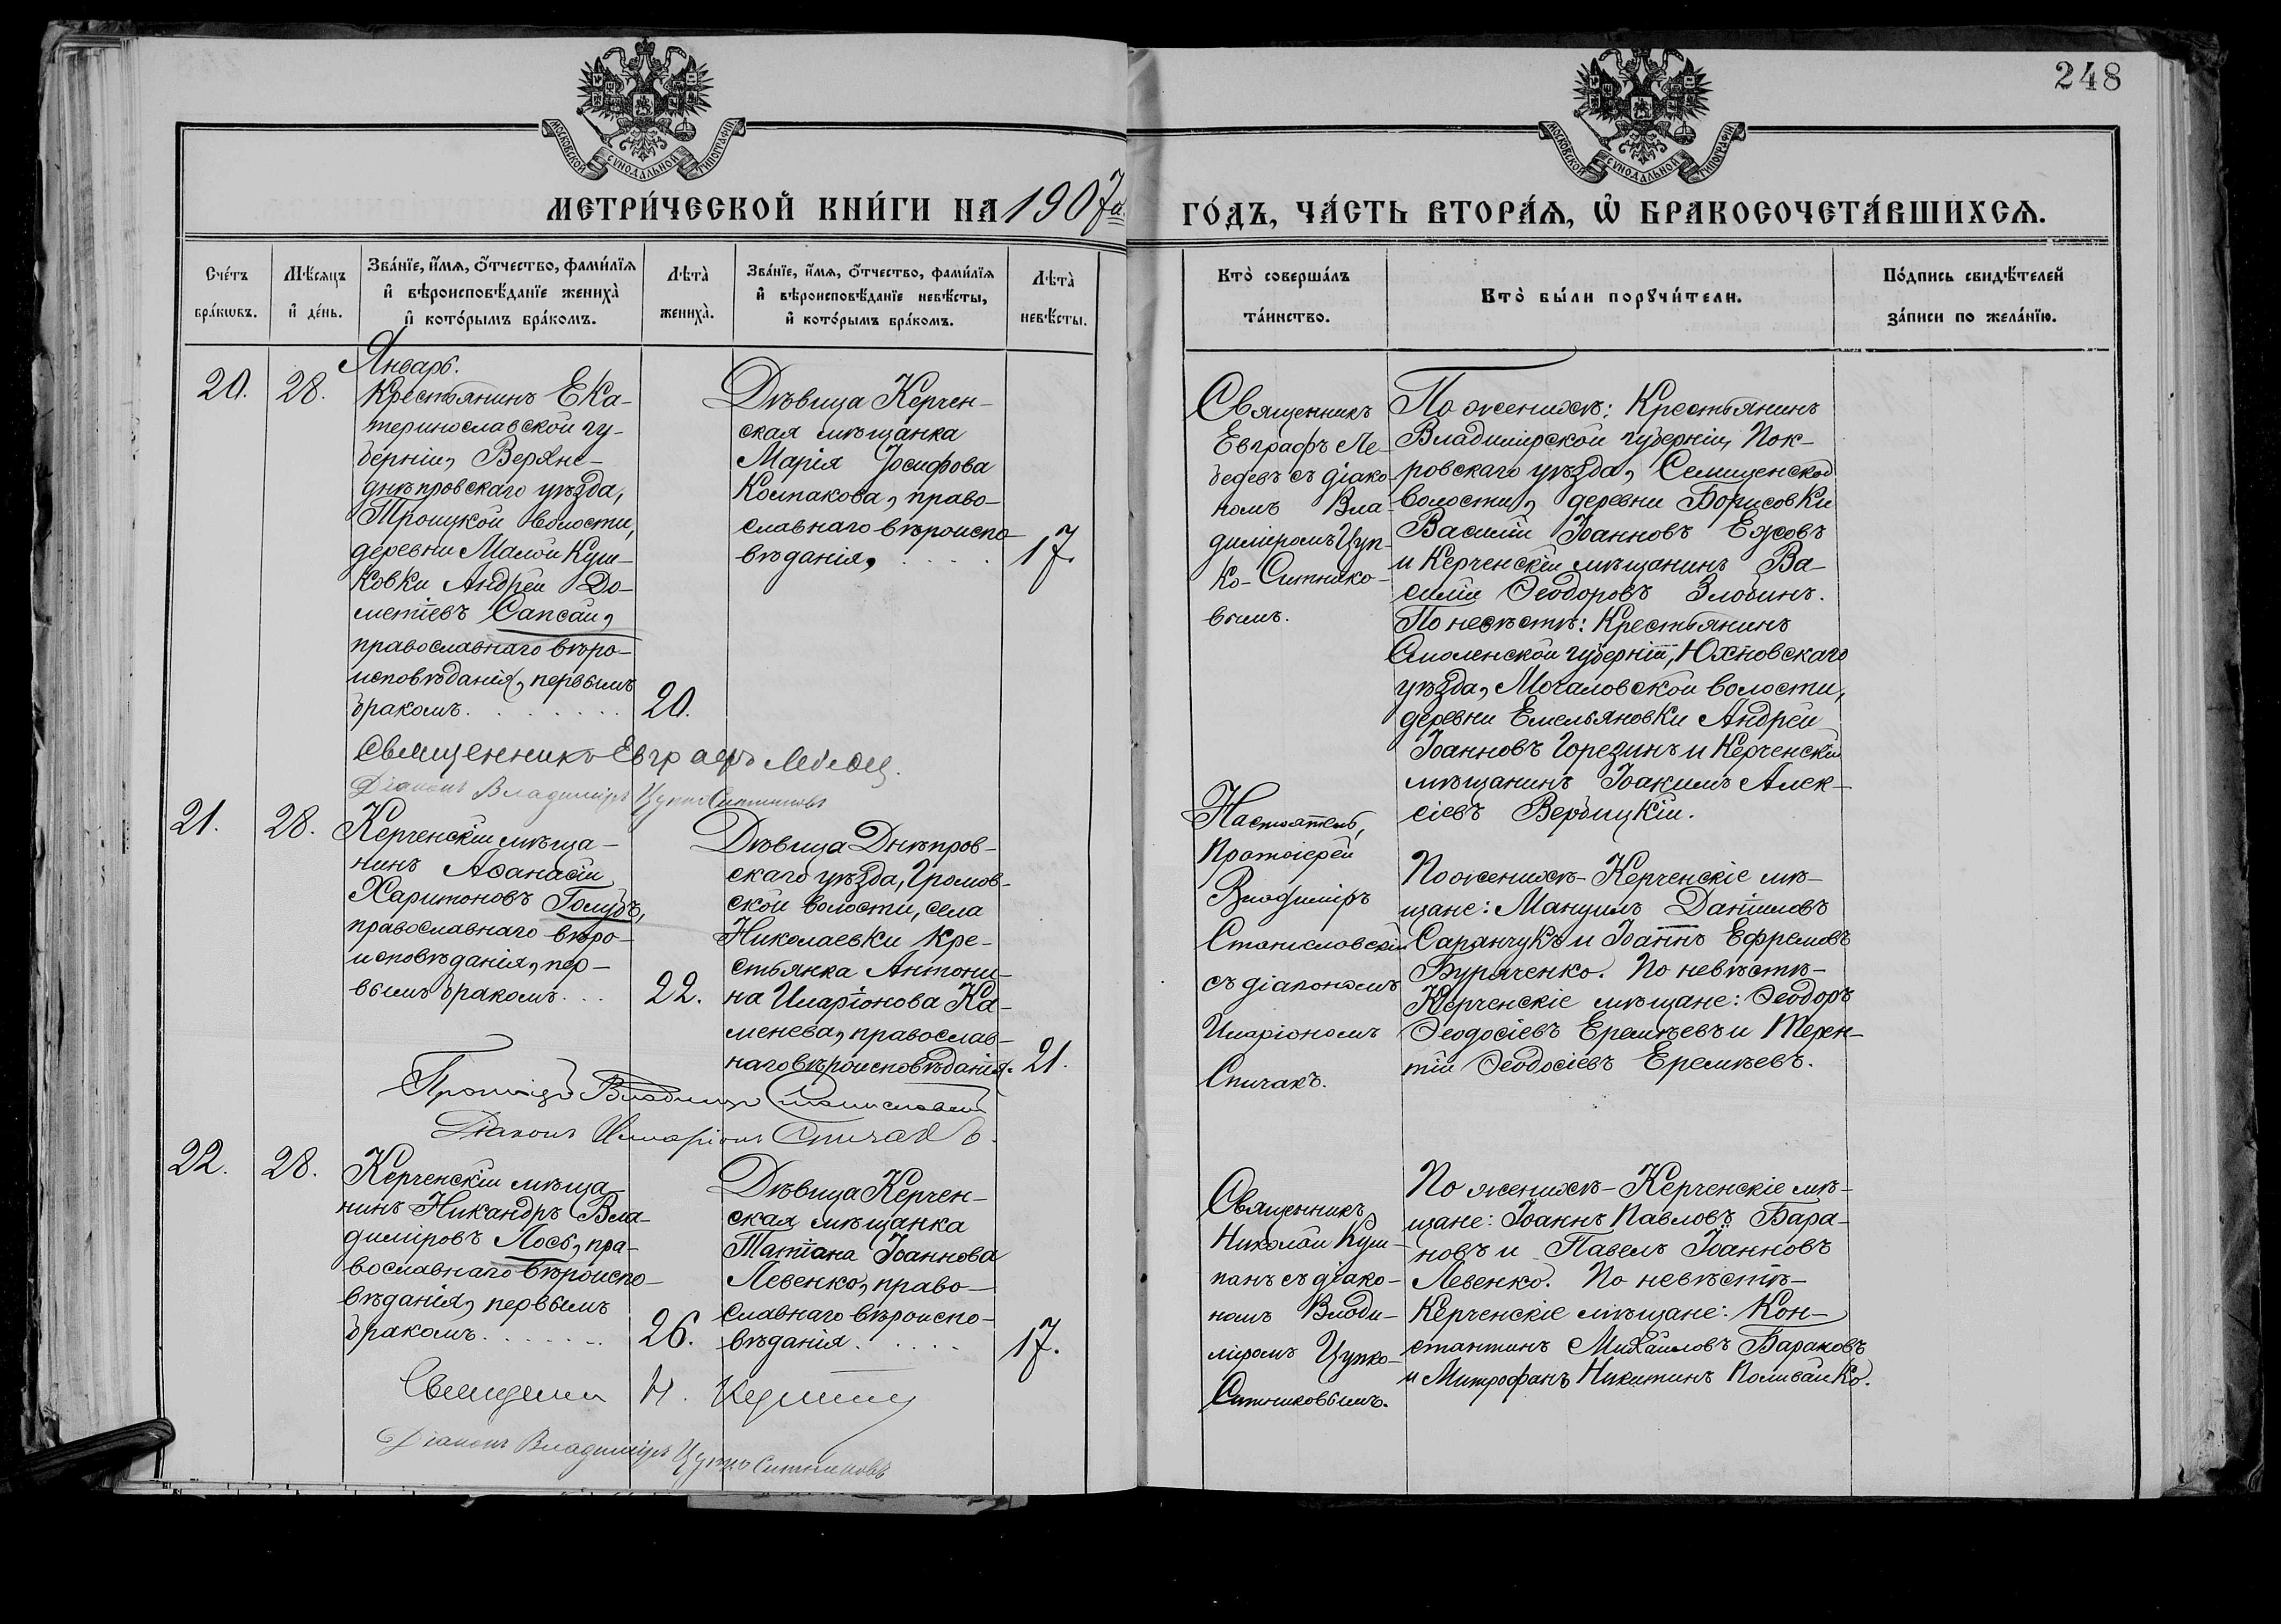 248
МОСКОВСКОЙ СУНОДАЛЬНОЙ ТИПОГРАФІИ
МОСКОВСКОЙ СУНОДАЛЬНОЙ ТИПОГРАФІИ
МЕТРИ́ЧЕСКОЙ КНИ́ГИ НА 1907й
ГО́ДЪ, ЧА́СТЬ ВТОРА́Ѧ, Ѡ БРАКОСОЧЕТА́ВШИХСѦ.
Сче́тъ бра́кѡвъ.
Мѣ́сѧцъ и҆ де́нь.
Зва́нїе, и҆́мѧ, ѻ҆́тчество, фами́лїѧ и҆ вѣроисповѣ́данїе жениха̀ и҆ кото́рымъ бра́комъ.
Лѣта̀ жениха̀.
Зва́нїе, и҆́мѧ, ѻ҆́тчество, фами́лїѧ и҆ вѣроисповѣ́данїе невѣ́сты, и҆ кото́рымъ бра́комъ.
Лѣта̀ невѣ́сты.
Кто̀ соверша́лъ та́инство.
Кто̀ бы́ли порꙋчи́тели.
По́дпись свидѣ́телей за́писи по жела́нїю.
Январь.
20.
28.
Крестьянинъ Ека-
теринославской гу-
берніи, Верхне-
днѣпровскаго уѣзда,
Троицкой волости,
деревни Малой Куш-
ковки Андрей До-
метіевъ Сапсай,
православнаго вѣро-
исповѣданія, первымъ
бракомъ.
20.
Дѣвица Керчен-
ская мѣщанка
Марія Іосифова
Колпакова, право-
славнаго вѣроиспо-
вѣданія,
17.
Священникъ
Евграфъ Ле-
бедевъ съ діако-
номъ Вла-
димиромъ Цуп-
ко-Ситнико-
вымъ.
По женихѣ: Крестьянинъ
Владимірской губерніи, Пок-
ровскаго уѣзда, Селищенской
волости, деревни Борисовки
Василій Іоанновъ Ежовъ
и Керченскій мѣщанинъ Ва-
силій Ѳеодоровъ Злобинъ.
По невѣстѣ: Крестьянинъ
Смоленской губерніи, Юхновскаго
уѣзда, Мочаловской волости,
деревни Емельяновки Андрей
Іоанновъ Горезинъ и Керченскій
мѣщанинъ Іоакимъ Алек-
сіевъ Вербицкій.
Священникъ Евграфъ Лебедев.
Діаконъ Владимиръ Цупко Ситниковъ
21.
28.
Керченскій мѣща-
нинъ Аѳанасій
Харитоновъ Голубъ,
православнаго вѣро-
исповѣданія, пер-
вымъ бракомъ.
22.
Дѣвица Днѣпров-
скаго уѣзда, Громов-
ской волости, села
Николаевки кре-
стьянка Антони-
на Иларіонова Ка-
менева, православ-
наго вѣроисповѣданія.
21.
Настоятель,
Протоіерей
Владиміръ
Станиславскій
съ діакономъ
Иларіономъ
Спичакъ.
По женихѣ- Керченскіе мѣ-
щане: Мануилъ Даніиловъ
Саранчукъ и Іоаннъ Ефремовъ
Буряченко. По невѣстѣ-
Керченскіе мѣщане: Ѳеодоръ
Ѳеодосіевъ Еремѣевъ и Терен-
тій Ѳеодосіевъ Еремѣевъ.
Владимиръ Станиславскій
Діаконъ Иларіонъ Спичакъ.
22.
28.
Керченскій мѣща-
нинъ Никандръ Вла-
диміровъ Лось, пра-
вославнаго вѣроиспо-
вѣданія, первымъ
бракомъ.
26.
Дѣвица Керчен-
ская мѣщанка
Татіана Іоаннова
Левенко, право-
славнаго вѣроиспо-
вѣданія.
17.
Священникъ
Николай Куш-
панъ съ діако-
номъ Влади-
міромъ Цупко-
Ситниковымъ.
По женихѣ- Керченскіе мѣ-
щане: Іоаннъ Павловъ Бара-
новъ и Павелъ Іоанновъ
Левенко. По невѣстѣ-
Керченскіе мѣщане: Кон-
стантинъ Михайловъ Бараковъ
и Митрофанъ Никитинъ Поливайко.
Священникъ Н.
Діаконъ Владимиръ Цупко Ситниковъ